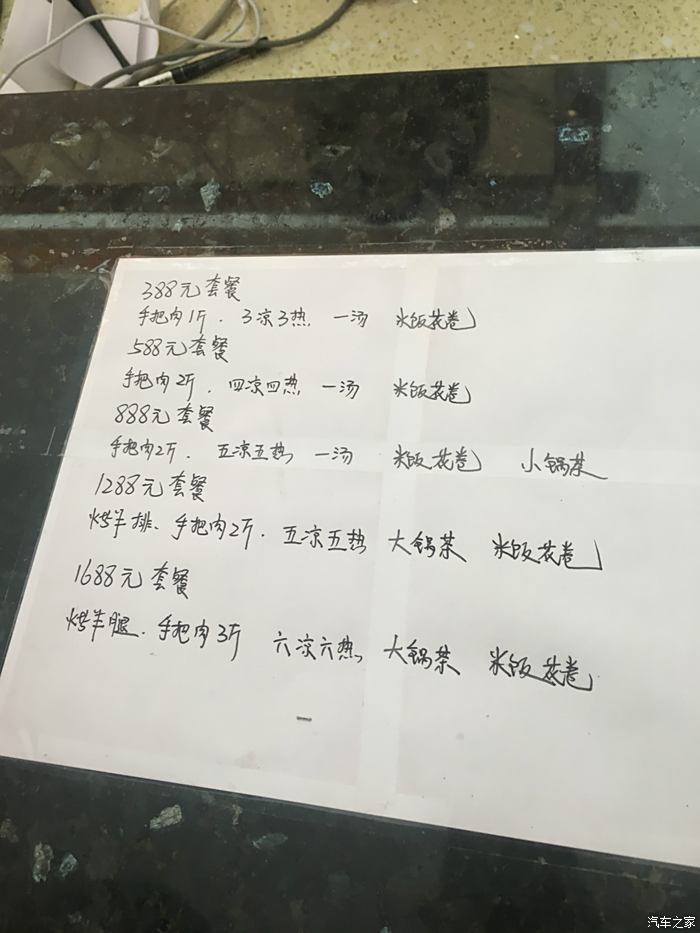 388元套餐
手把肉1斤.3凉3热 一汤 米饭花卷
588元套餐
手把肉2斤.四凉四热 一汤 米饭花卷
888元套餐
手把肉2斤.五凉五热 一汤 米饭花卷 小锅茶
1288元套餐
烤羊排、手把肉2斤.五凉五热 大锅茶 米饭花卷
1688元套餐
烤羊腿.手把肉3斤 六凉六热 大锅茶 米饭花卷
汽车之家